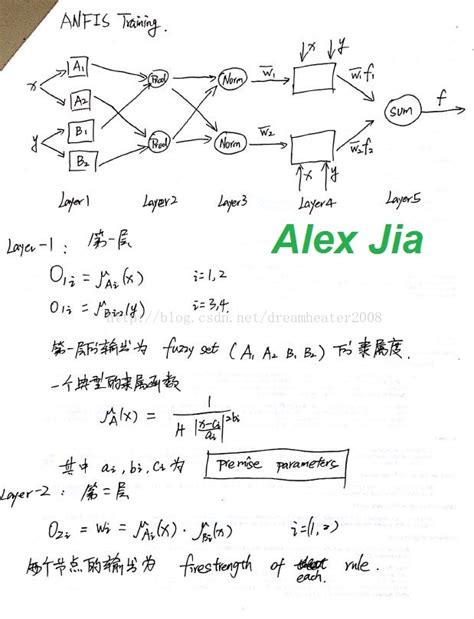 ANFIS Training.
x A1 Prod Norm w̅1 x y w̅1f1
A2 SUM f
y B1 Prod Norm w̅2 w̅2f2
B2 x y
Layer1 Layer2 Layer3 Layer4 Layer5
Alex Jia
Layer-1: 第一层
O1i = μAi(x) i=1,2
O1i = μBi-2(y) i=3,4.
http://blog.csdn.net/dreamheater2008
第一层的输出为 fuzzy set (A1 A2 B1 B2) 的隶属度.
一个典型的隶属函数
μA(x) = 1 / 1+|x-ci/ai|^2bi
其中 ai, bi, ci 为 premise parameters
Layer-2: 第二层
O2i = wi = μAi(x) · μBi(x) i=(1,2)
每个节点的输出为 firestrength of each rule.